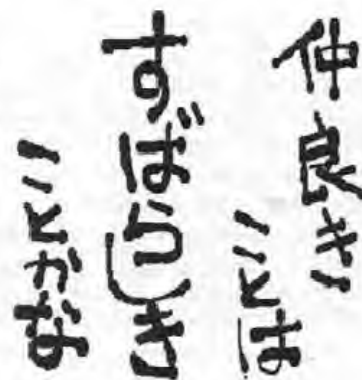 仲良き
ことは
すばらしき
ことかな